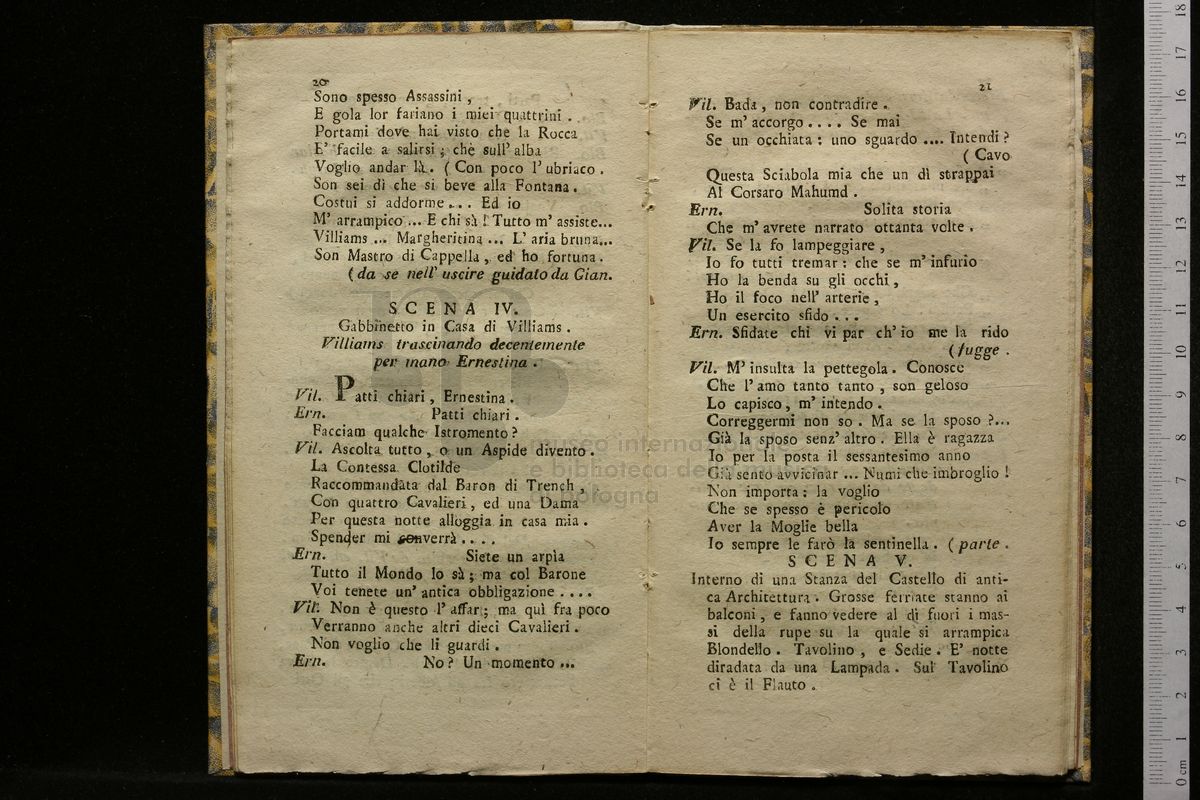 20
Sono spesso Assassini,
E gola lor fariano i miei quattrini.
Portami dove hai visto che la Rocca
E' facile a salirsi; chè sull' alba
Voglio andar là. (Con poco l' ubriaco.
Son sei dì che si beve alla Fontana.
Costui si addorme... Ed io
M' arrampico... E chi sà! Tutto m' assiste...
Villiams... Margheritina... L' aria bruna...
Son Mastro di Cappella, ed ho fortuna.
(da se nell' uscire guidato da Gian.
SCENA IV.
Gabbinetto in Casa di Villiams.
Villiams trascinando decentemente
per mano Ernestina.
Vil. Patti chiari, Ernestina.
Ern. Patti chiari.
Facciam qualche Istromento?
Vil. Ascolta tutto, o un Aspide divento.
La Contessa Clotilde
Raccommandata dal Baron di Trench,
Con quattro Cavalieri, ed una Dama
Per questa notte alloggia in casa mia.
Spender mi converrà....
Ern. Siete un arpìa
Tutto il Mondo lo sà; ma col Barone
Voi tenete un' antica obbligazione....
Vil. Non è questo l' affar; ma quì fra poco
Verranno anche altri dieci Cavalieri.
Non voglio che li guardi.
Ern. No? Un momento...
21
Vil. Bada, non contradire.
Se m' accorgo.... Se mai
Se un occhiata: uno sguardo.... Intendi?
(Cavo
Questa Sciabola mia che un dì strappai
Al Corsaro Mahumd.
Ern. Solita storia
Che m' avrete narrato ottanta volte.
Vil. Se la fo lampeggiare,
Io fo tutti tremar: che se m' infurio
Ho la benda su gli occhi,
Ho il foco nell' arterie,
Un esercito sfido...
Ern. Sfidate chi vi par ch' io me la rido
(fugge.
Vil. M' insulta la pettegola. Conosce
Che l' amo tanto tanto, son geloso
Lo capisco, m' intendo.
Correggermi non so. Ma se la sposo?...
Già la sposo senz' altro. Ella è ragazza
Io per la posta il sessantesimo anno
Già sento avvicinar... Numi che imbroglio!
Non importa: la voglio
Che se spesso è pericolo
Aver la Moglie bella
Io sempre le farò la sentinella. (parte.
SCENA V.
Interno di una Stanza del Castello di anti-
ca Architettura. Grosse ferriate stanno ai
balconi, e fanno vedere al di fuori i mas-
si della rupe su la quale si arrampica
Blondello. Tavolino, e Sedie. E' notte
diradata da una Lampada. Sul Tavolino
ci è il Flauto.
museo internazionale
e biblioteca della musica
di bologna